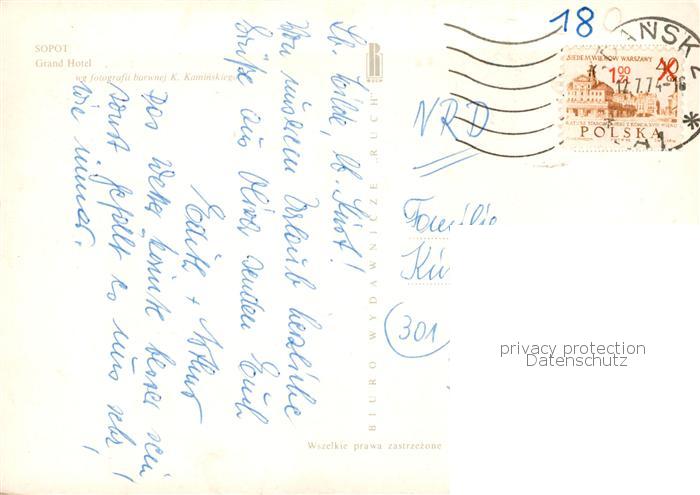 SOPOT
Grand Hotel
wg fotografii barwnej K. Kamińskiego
Lb. Hilde, lb. Kurt!
Von unserem Urlaub herzliche
Grüße aus Oliva senden Euch
Edith + Artur
Das Wetter könnte besser sein
sonst gefällt es uns sehr!
wie immer.
BIURO WYDAWNICZE "RUCH"
Wszelkie prawa zastrzeżone
180
SIEDEM WIEKÓW WARSZAWY
40
1,00
ZŁ
POLSKA
GDAŃSK 2
12.7.74-16
NRD
Familie
Kü
301
privacy protection
Datenschutz